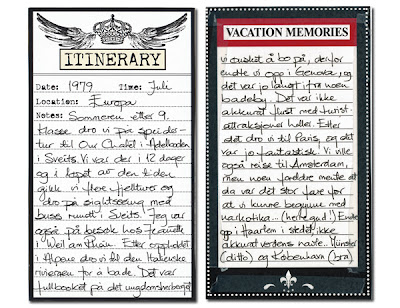 ITINERARY
Date: 1979 Time: Juli
Location: Europa
Notes: Sommeren etter 9.
klasse dro vi på speider-
tur til Our Chalet i Adelboden
i Sveits. Vi var der i 12 dager
og i løpet av den tiden
gikk vi flere fjellturer og
dro på sightseeing med
buss rundt i Sveits. Jeg var
også på besøk hos
i Weil am Rhein. Etter oppholdet
i Alpene dro vi til den italienske
rivieraen for å bade. Det var
fullbooket på det ungdomsherberget
VACATION MEMORIES
vi ønsket å bo på, derfor
endte vi opp i Genova, og
det var jo langt ifra noen
badeby. Det var ikke
akkurat flust med turist
attraksjoner heller. Etter
det dro vi til Paris, og det
var jo fantastisk. Vi ville
også reise til Amsterdam,
men noen foreldre mente at
da var det stor fare for
at vi kunne begynne med
narkotika... (herregud!) Endte
opp i Haarlem i stedet, ikke
akkurat verdens navle. Münster
(ditto) og København (bra)